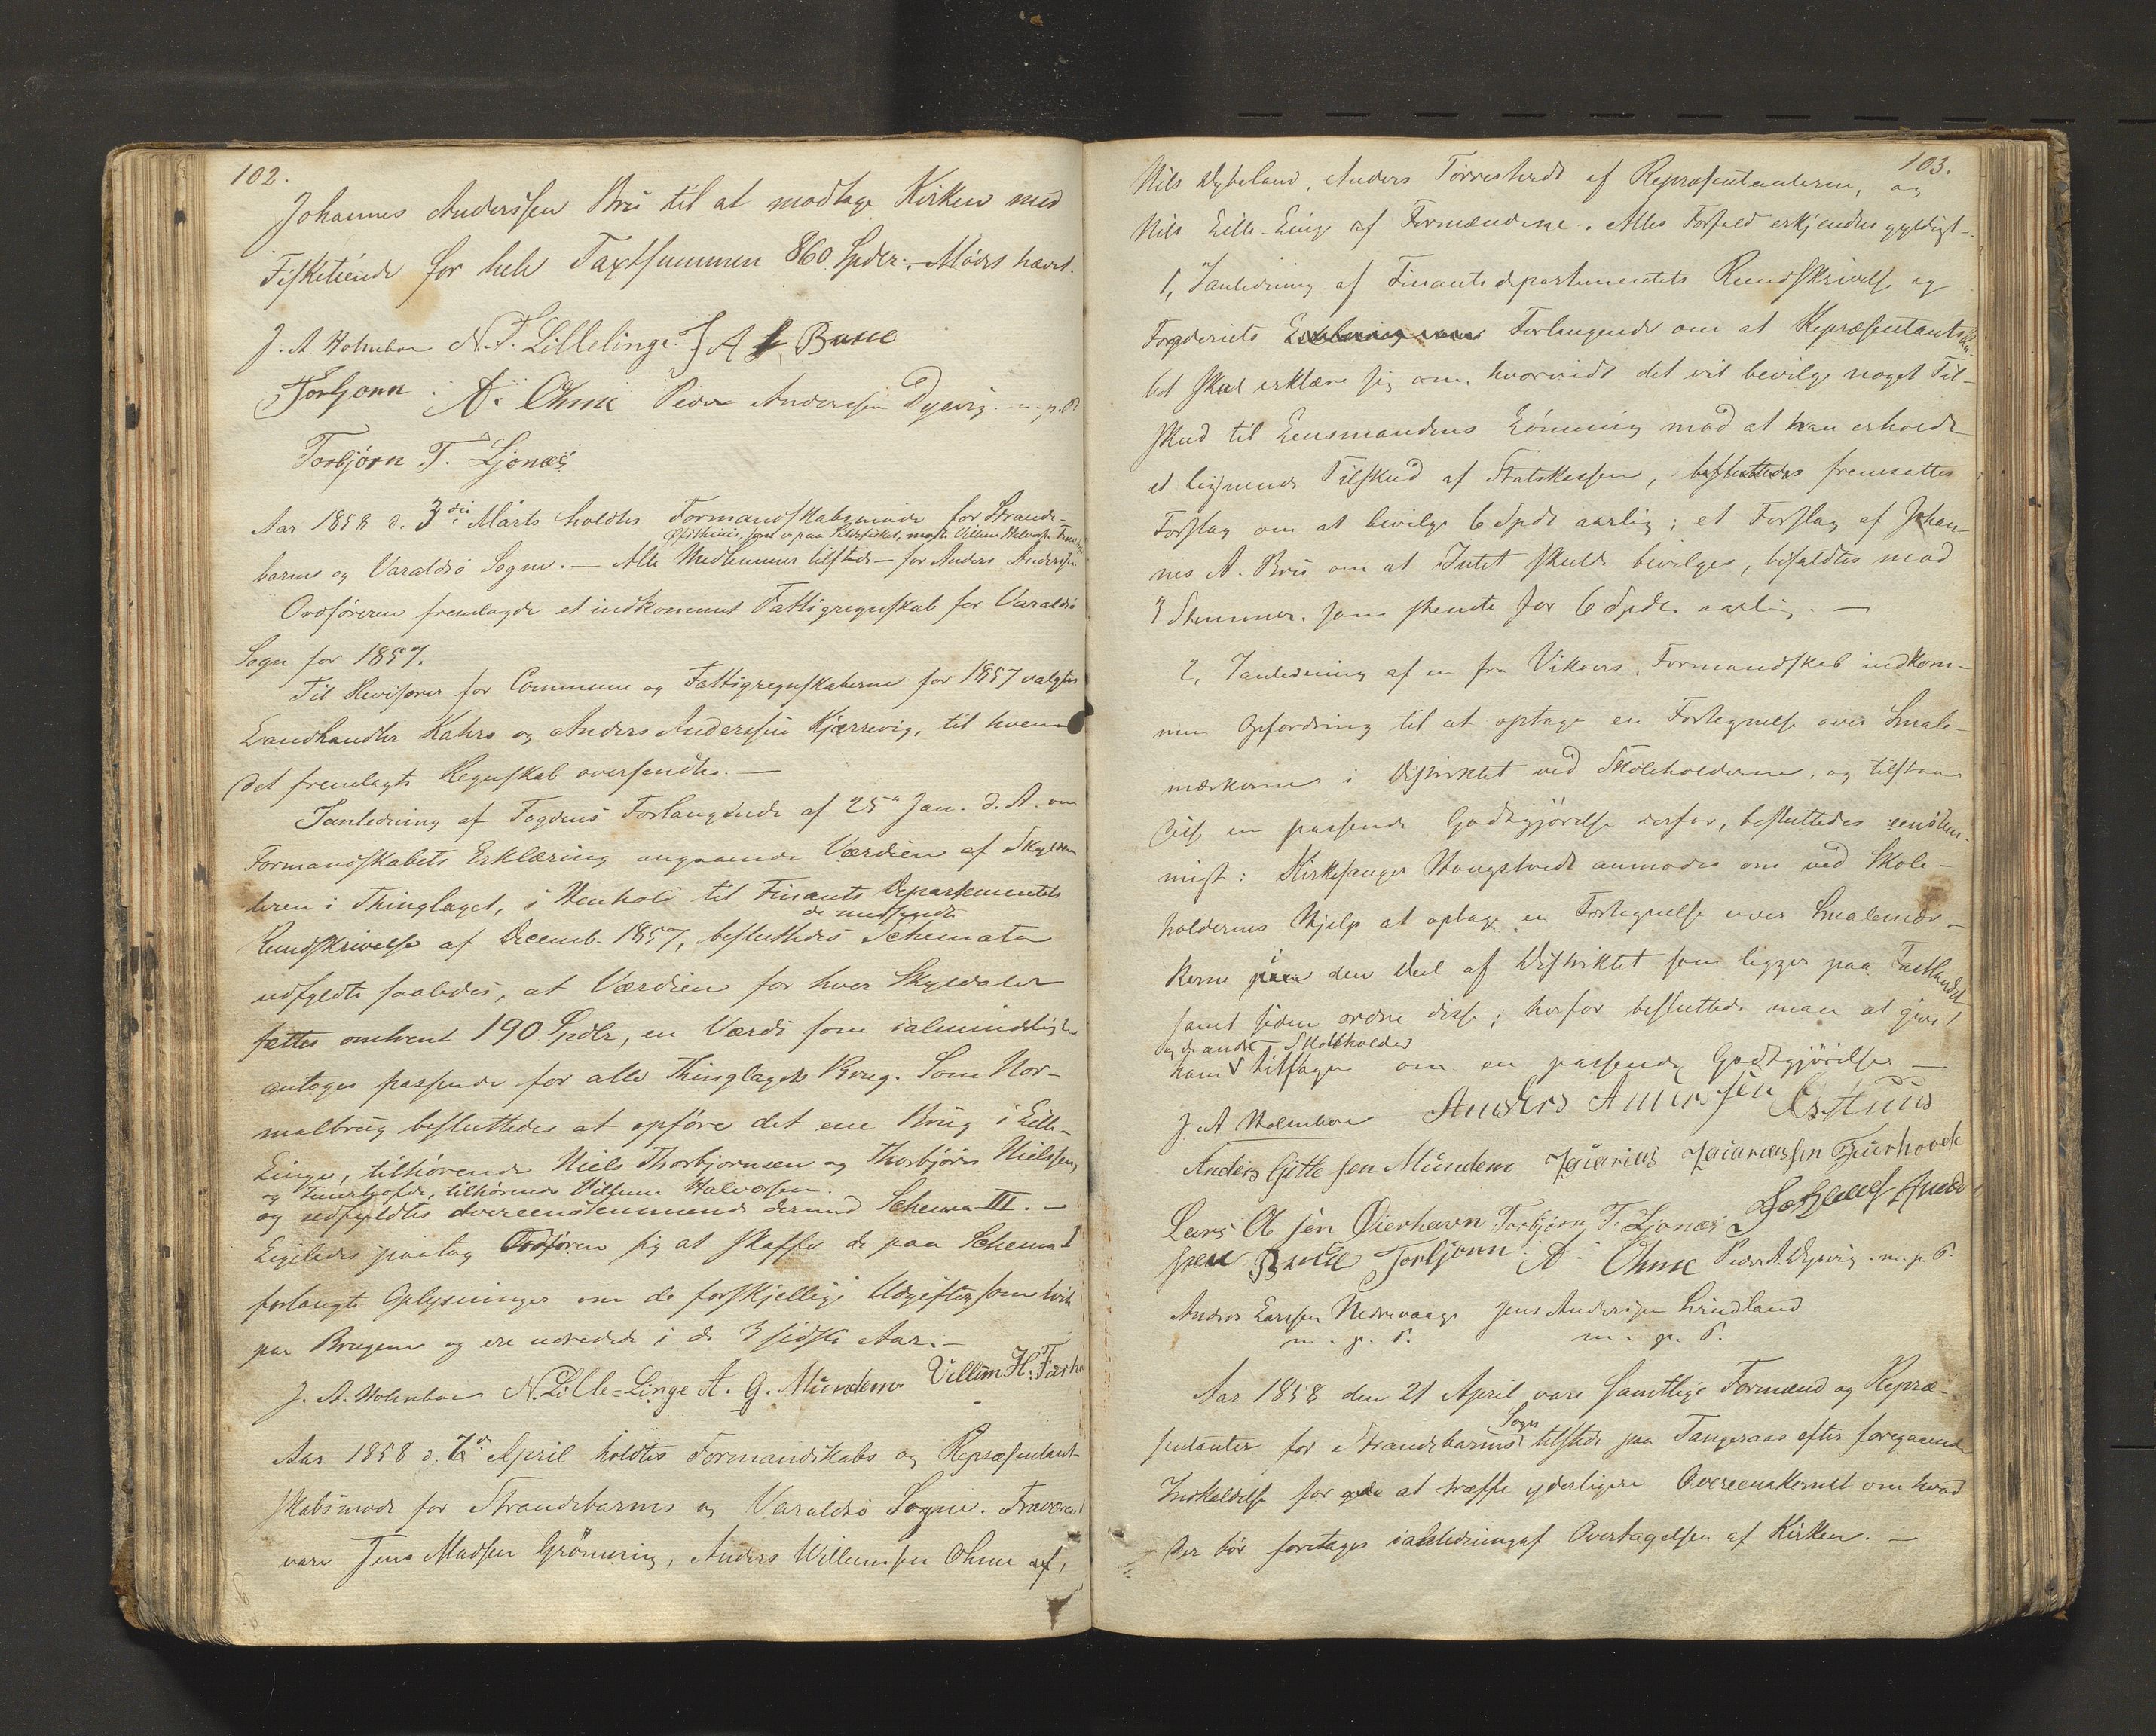 102.
Johannes Anderssen Bru til at modtage Kirken med
Fisketiende for hele Taxtsummen 860 Spdlr. – Mødet hævet.
J. A. Holmboe N. T. Lillelinge. J A Bruue
Torbjønn A. Ohme Peder Anderssen Dysvig m. p. P.
Torbjørn T. Ljonæs
Aar 1858 d. 3die Marts holdtes Formandskabsmøde for Strande-
Østhuus, som er paa Sildefisket, mødte Villum Halvorsen
barms og Varaldsø Sogne. – Alle Medlemmer tilstede – for Anders Anderssen
Ordføreren fremlagde et indkommet Fattigregnskab for Varaldsø
Sogn for 1857.
Til Revisorer for Commune og Fattigregnskaberne for 1857 valgtes
Landhandler Kahrs og Anders Anderssen Kjærevig, til hvem
det fremlagte Regnskab oversendtes. –
I anledning af Fogdens Forlangende af 25de Jan. d. A. om
Formandskabets Erklæring angaaende Værdien af Skylden
leren i Thinglaget, i Henhold til Finants Departementets
de medsendte
Rundskrivelse af Decemb. 1857, besluttedes Schemata
udfyldte saaledes, at Værdien for hver Skyldaler
sættes omtrent 190 Spdlr, en Værdi som ialmindelighed
antages passende for alle Thinglagets Brug. Som Nor-
malbrug besluttedes at opføre det ene Brug i Lille-
Linge, tilhørende Niels Thorbjørnsen og Thorbjørn Nielsen,
tilhørende Villum Halvorsen.
og udfyldtes overeensstemmende dermed Schema III. –
Ligeledes paatog Ordføren sig at skaffe de paa Schema I
forlangte Oplysninger om de forskjellige Udgifter som hvile
paa Brugene og ere udredede i de 3 sidste Aar. –
J. A. Holmboe N. Lille-Linge A. G. Mundem Villum H. Fuurho
Aar 1858 d. 7de April holdtes Formandskabs og Repræsentant-
skabsmøde for Strandebarms og Varaldsø Sogne. Fraværende
vare Jens Madsen Grønnevig, Anders Willumsen Ohme
103.
Nils Dybeland, Anders Tørrestvedt af Repræsentanterne, og
Nils Lille-Linge af Formændene. Alles Forfald erkjendtes gyldigt –
1, I anledning af Finantsdepartementets Rundskrivelse og
Fogderiets Forlangende om at Repræsentantska-
bet skal erklære sig om, hvorvidt det vil bevilge noget Til-
skud til Lensmandens Lønning mod at han erholder
et lignende Tilskud af Statskassen, fremsattes
Forslag om at bevilge 6 Spdr aarlig; et Forslag af Johan-
nes A. Bru om at Intet skulde bevilges, bifaldtes mod
3 Stemmer, som stemte for 6 Spdr aarlig. –
2, I anledning af en fra Vikørs Formandskab indkom-
men Opfordring til at optage en Fortegnelse over Smale-
mærkerne i Distriktet ved Skoleholderne, og tilstaae
disse en passende Godtgjørelse derfor, besluttedes eenstem-
migt: Kirkesanger Haugstvedt anmodes om ved Skole-
holdernes Hjelp at optage en Fortegnelse over Smalemær-
kerne i den Deel af Distriktet som ligger paa Fastlandet
samt siden ordne disse; herfor besluttede man at give
og de andre Skoleholdere
ham Tilsagn om en passende Godtgjørelse –
J. A. Holmboe Anders Andersen Østhuus
Anders Gittesen Mundem Zaiarias Zaiariassen Fuurhovde
Lars Olsen Øierhavn Torbjørn T. Ljonæs Johannes Ander
ssen Bruue Torbjønn A. Ohme Peder A. Dysvig m. p. P.
Anders Larssen Nedrevaage Jens Anderssen Lindland
m. p. P. m. p. P.
Aar 1858 den 21 April vare samtlige Formænd og Repræ-
Sogn
sentanter for Strandebarms tilstede paa Tangeraas efter foregaaende
Indkaldelse for at træffe yderligere Overeenskomst om hvad
der bør foretages i anledning af Overtagelsen af Kirken. –